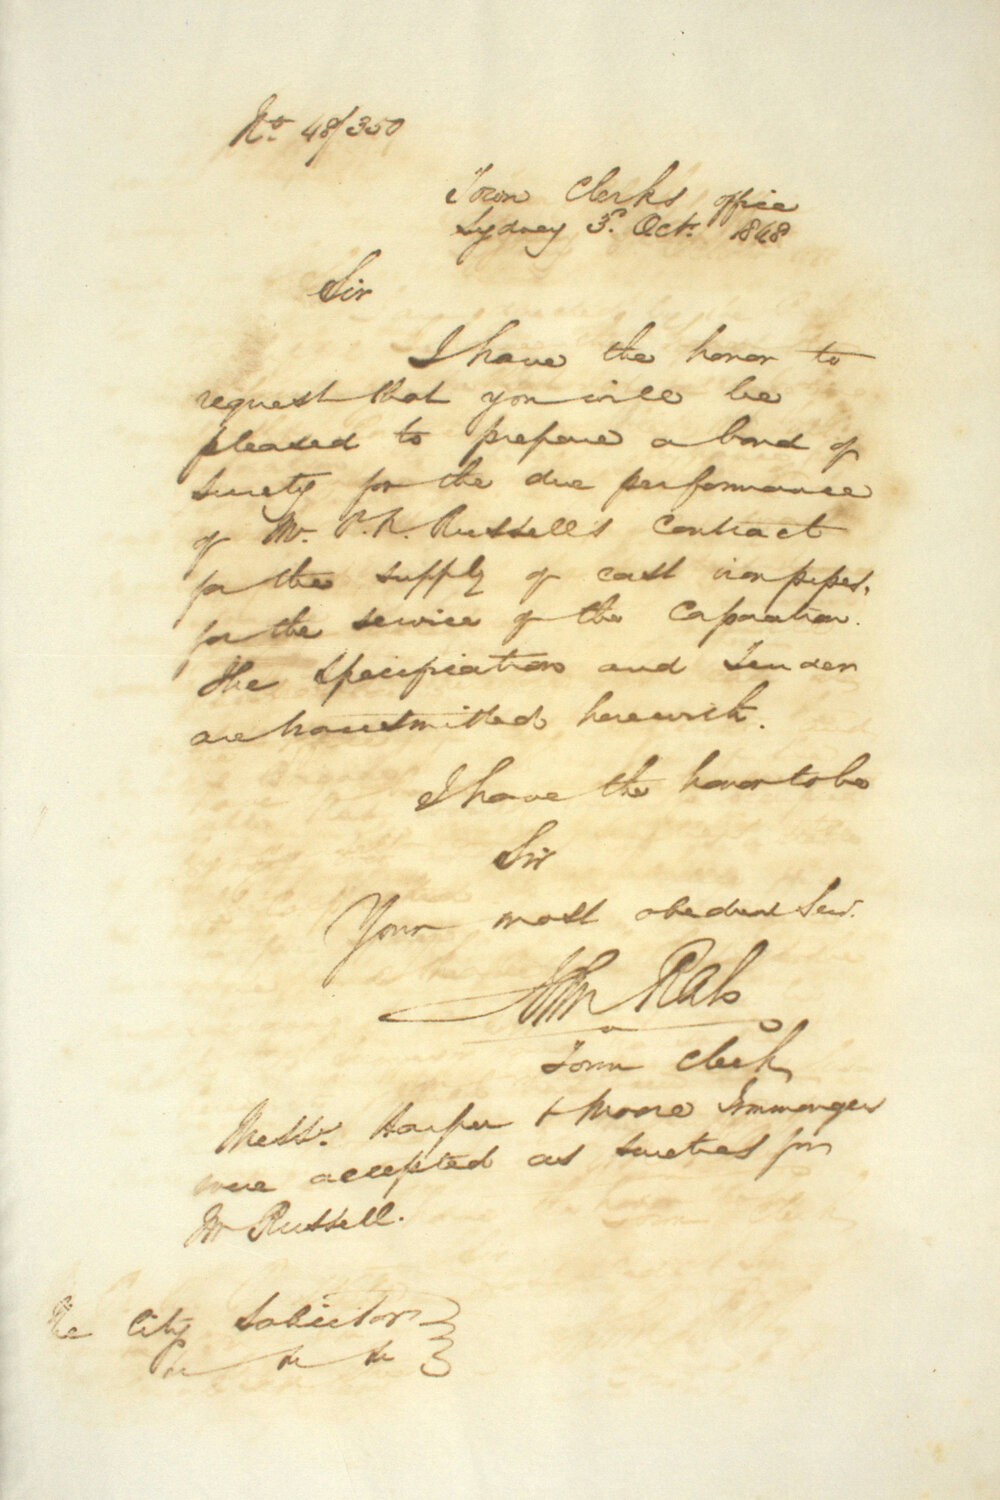 No. 48/350
Town Clerks office
Sydney 3d. Oct. 1848
Sir
I have the honor to
request that you will be
pleased to prepare a bond of
surety for the due performance
of Mr. P. N. Russell's contract
for the supply of cast iron pipes,
for the service of the Corporation.
The Specification and Tender
are transmitted herewith.
I have the honor to be
Sir
Your most obedient Serv.
John Rae
Town Clerk
Messrs. Harper & Moore Ironmongers
were accepted as sureties for
Mr Russell.
The City Solicitor
&c &c &c